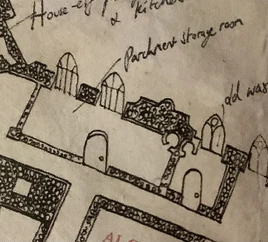 House-elf
& Kitchen
Parchment storage room
old was
AL